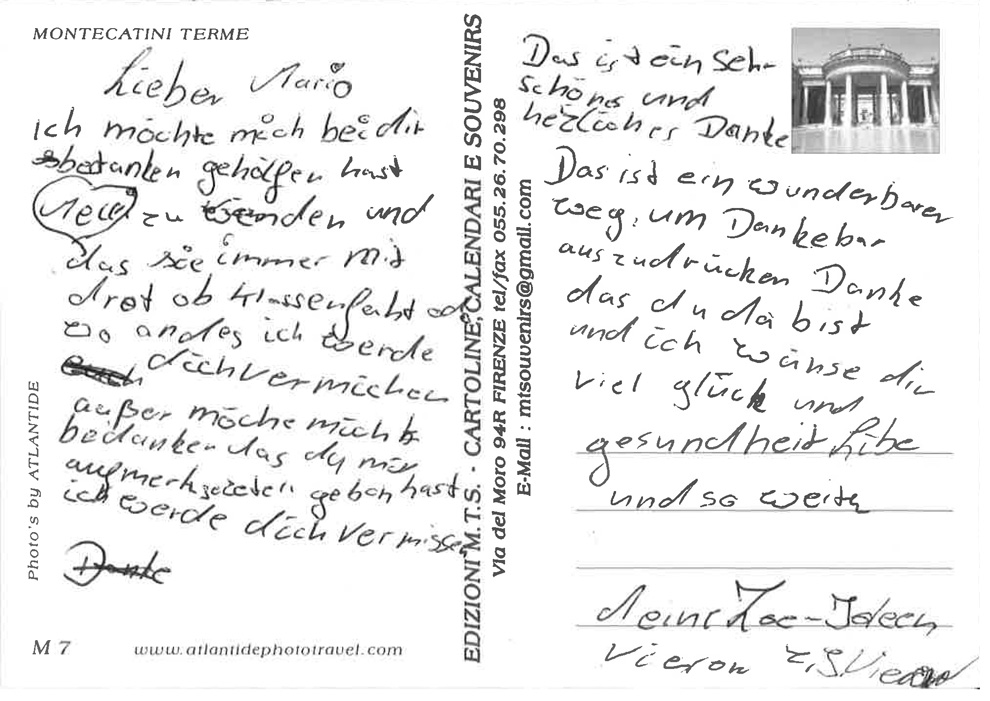 MONTECATINI TERME
Lieber Mario
ich möchte mich bei dir
bedanken geholfen hast
zu und
das sie immer mit
dret ob klassenfahrt od
wo andes ich werde
dich vermichen
außer möche mich b
bedanken das du mir
augmerkzeten geben hast
ich werde dich vermissen
Danke
M 7
www.atlantidephototravel.com
Photo's by ATLANTIDE
EDIZIONI M.T.S. - CARTOLINE, CALENDARI E SOUVENIRS
Via del Moro 94R FIRENZE tel/fax 055.26.70.298
E-Mail : mtsouvenirs@gmail.com
Das ist ein seh-
schönes und
hezliches Danke
Das ist ein wunderbarer
weg, um Dankebar
auszudrücken Danke
das du da bist
und ich wünse dir
viel glück und
gesundheit libe
und so weiter
deine Zoe-